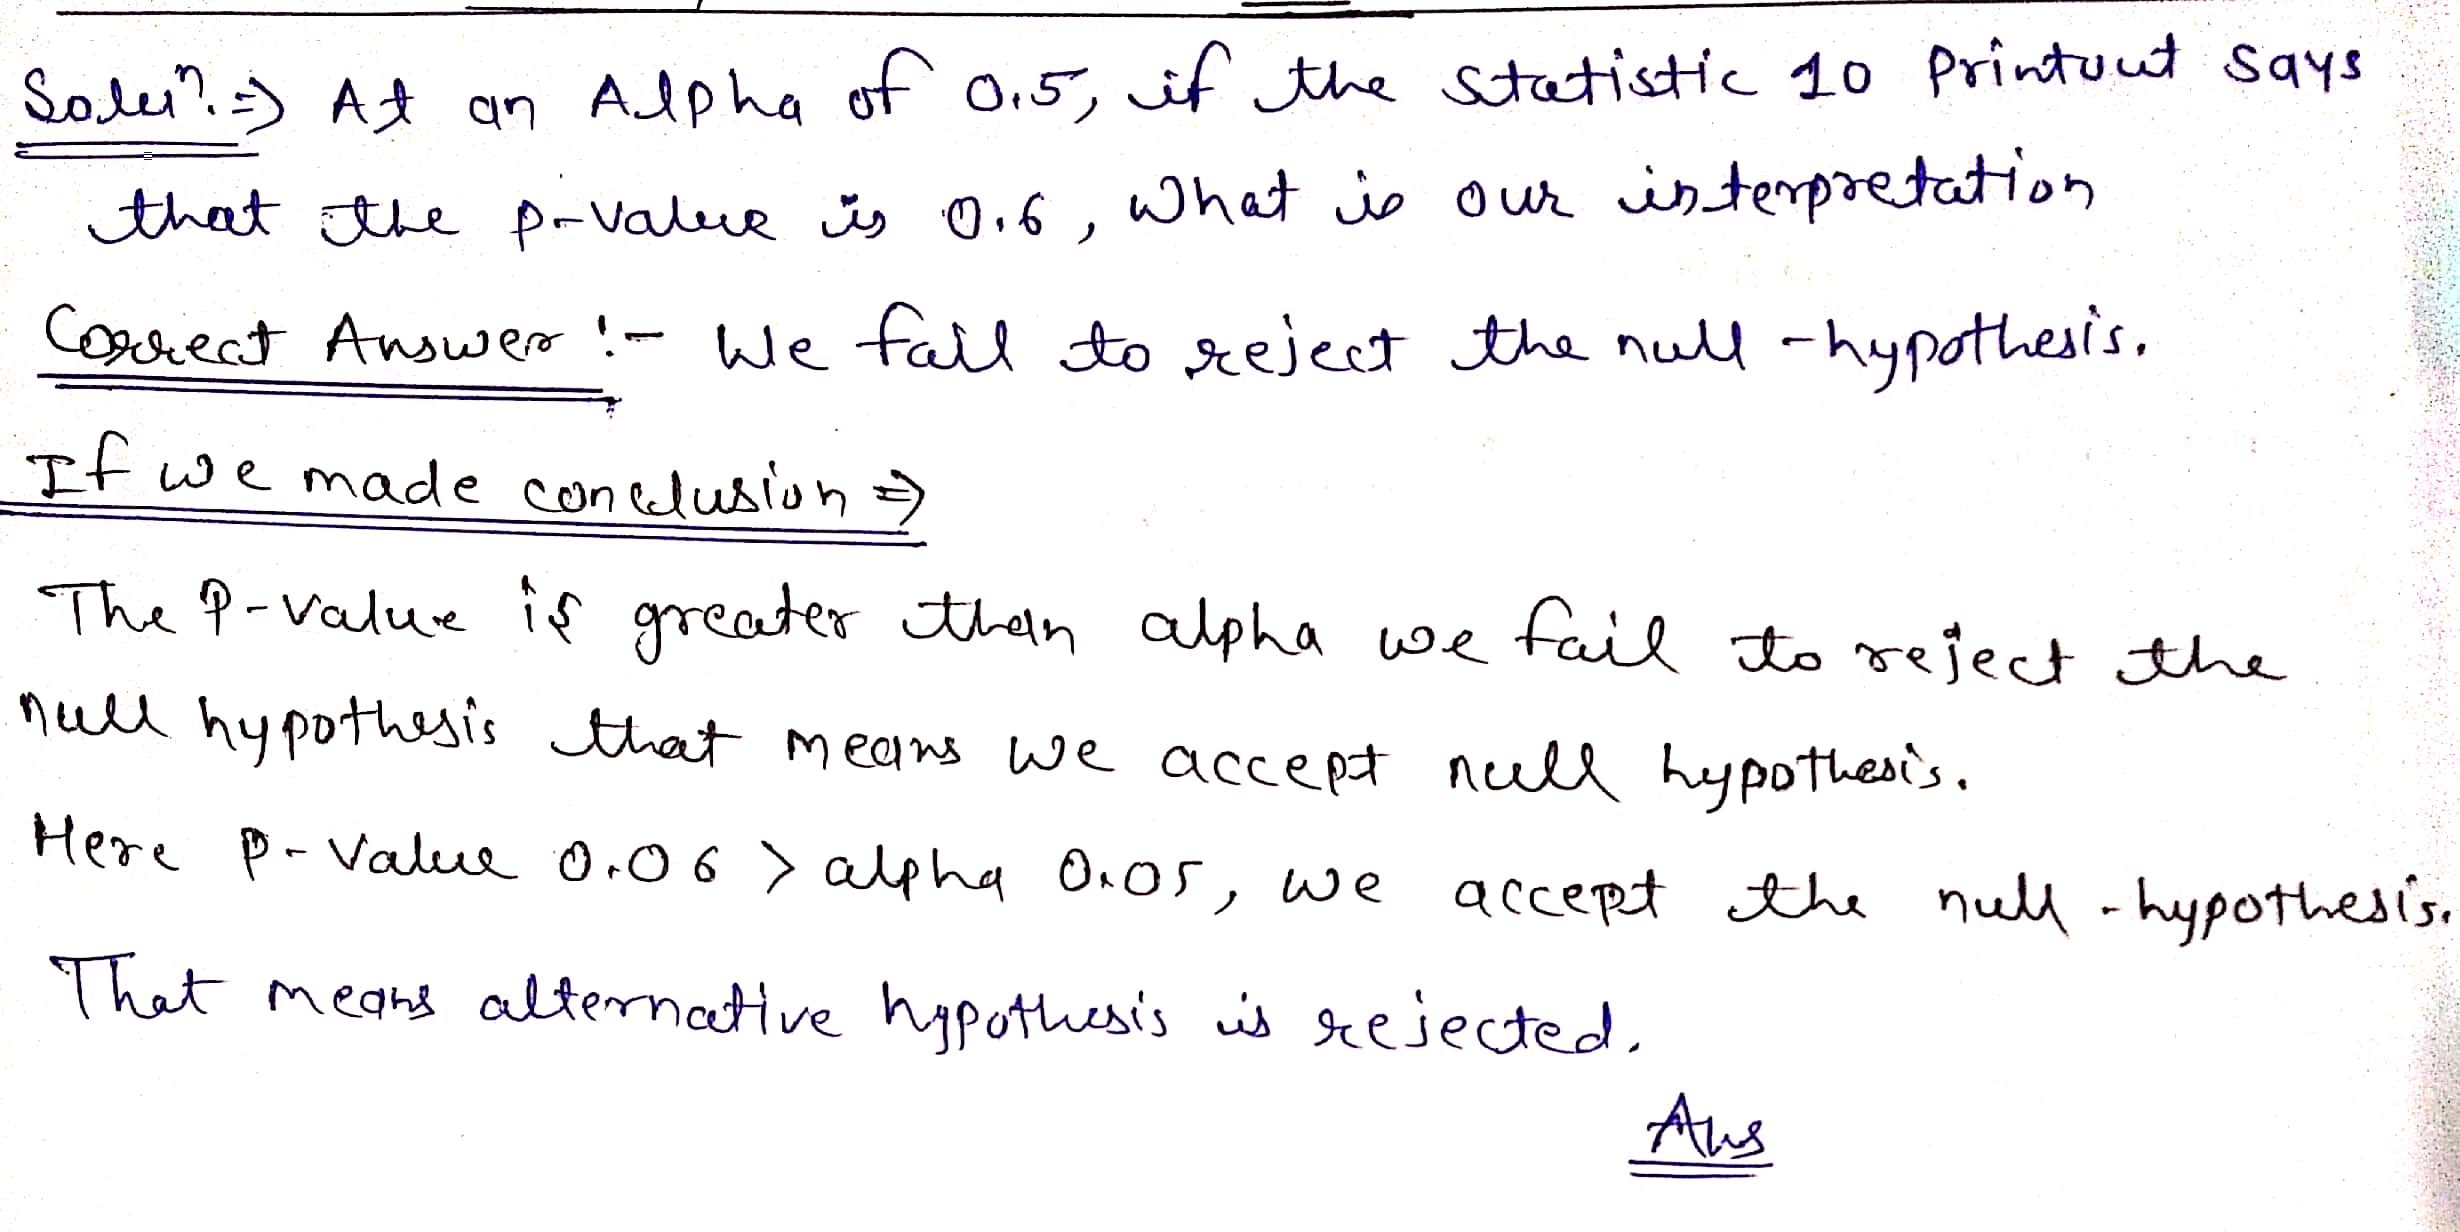 Soluⁿ.⇒ At an Alpha of 0.5, if the statistic 10 Printout says
that the p-value is 0.6, What is our interpretation
Correct Answer :- We fail to reject the null -hypothesis.
If we made conclusion ⇒
The P-value is greater than alpha we fail to reject the
null hypothesis that means we accept null hypothesis.
Here P-Value 0.06 > alpha 0.05, we accept the null -hypothesis.
That means alternative hypothesis is rejected.
Ans